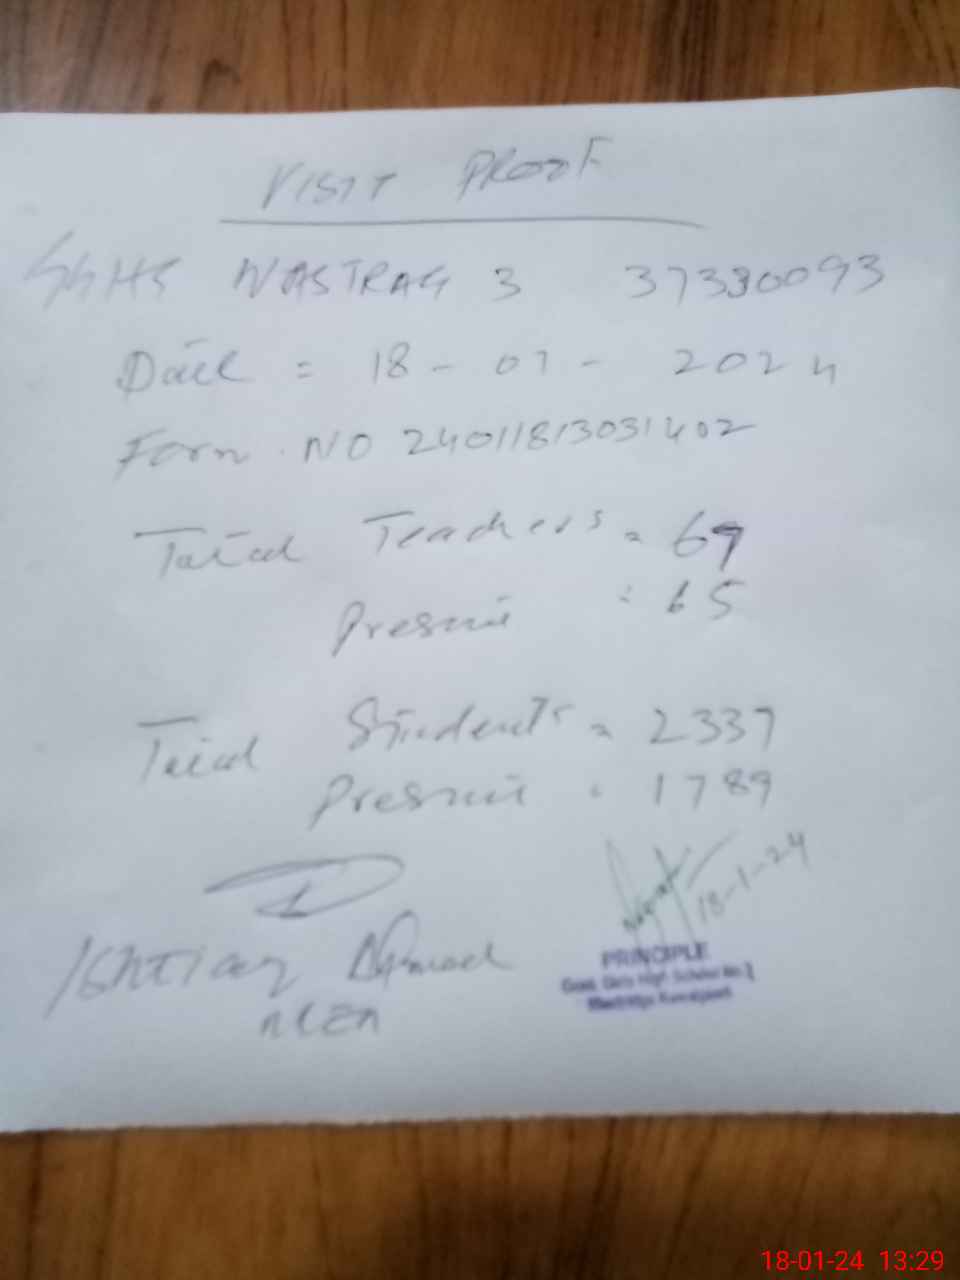 VISIT PROOF
GGHS NASTRAG 3 37330093
Date = 18-01-2024
Form NO 24011813031402
Total Teachers = 67
Present : 65
Total Students = 2337
Present : 1789
18-1-24
Ishtiaq Ahmad
PRINCIPLE
Govt. Girls High School No.
18-01-24 13:29